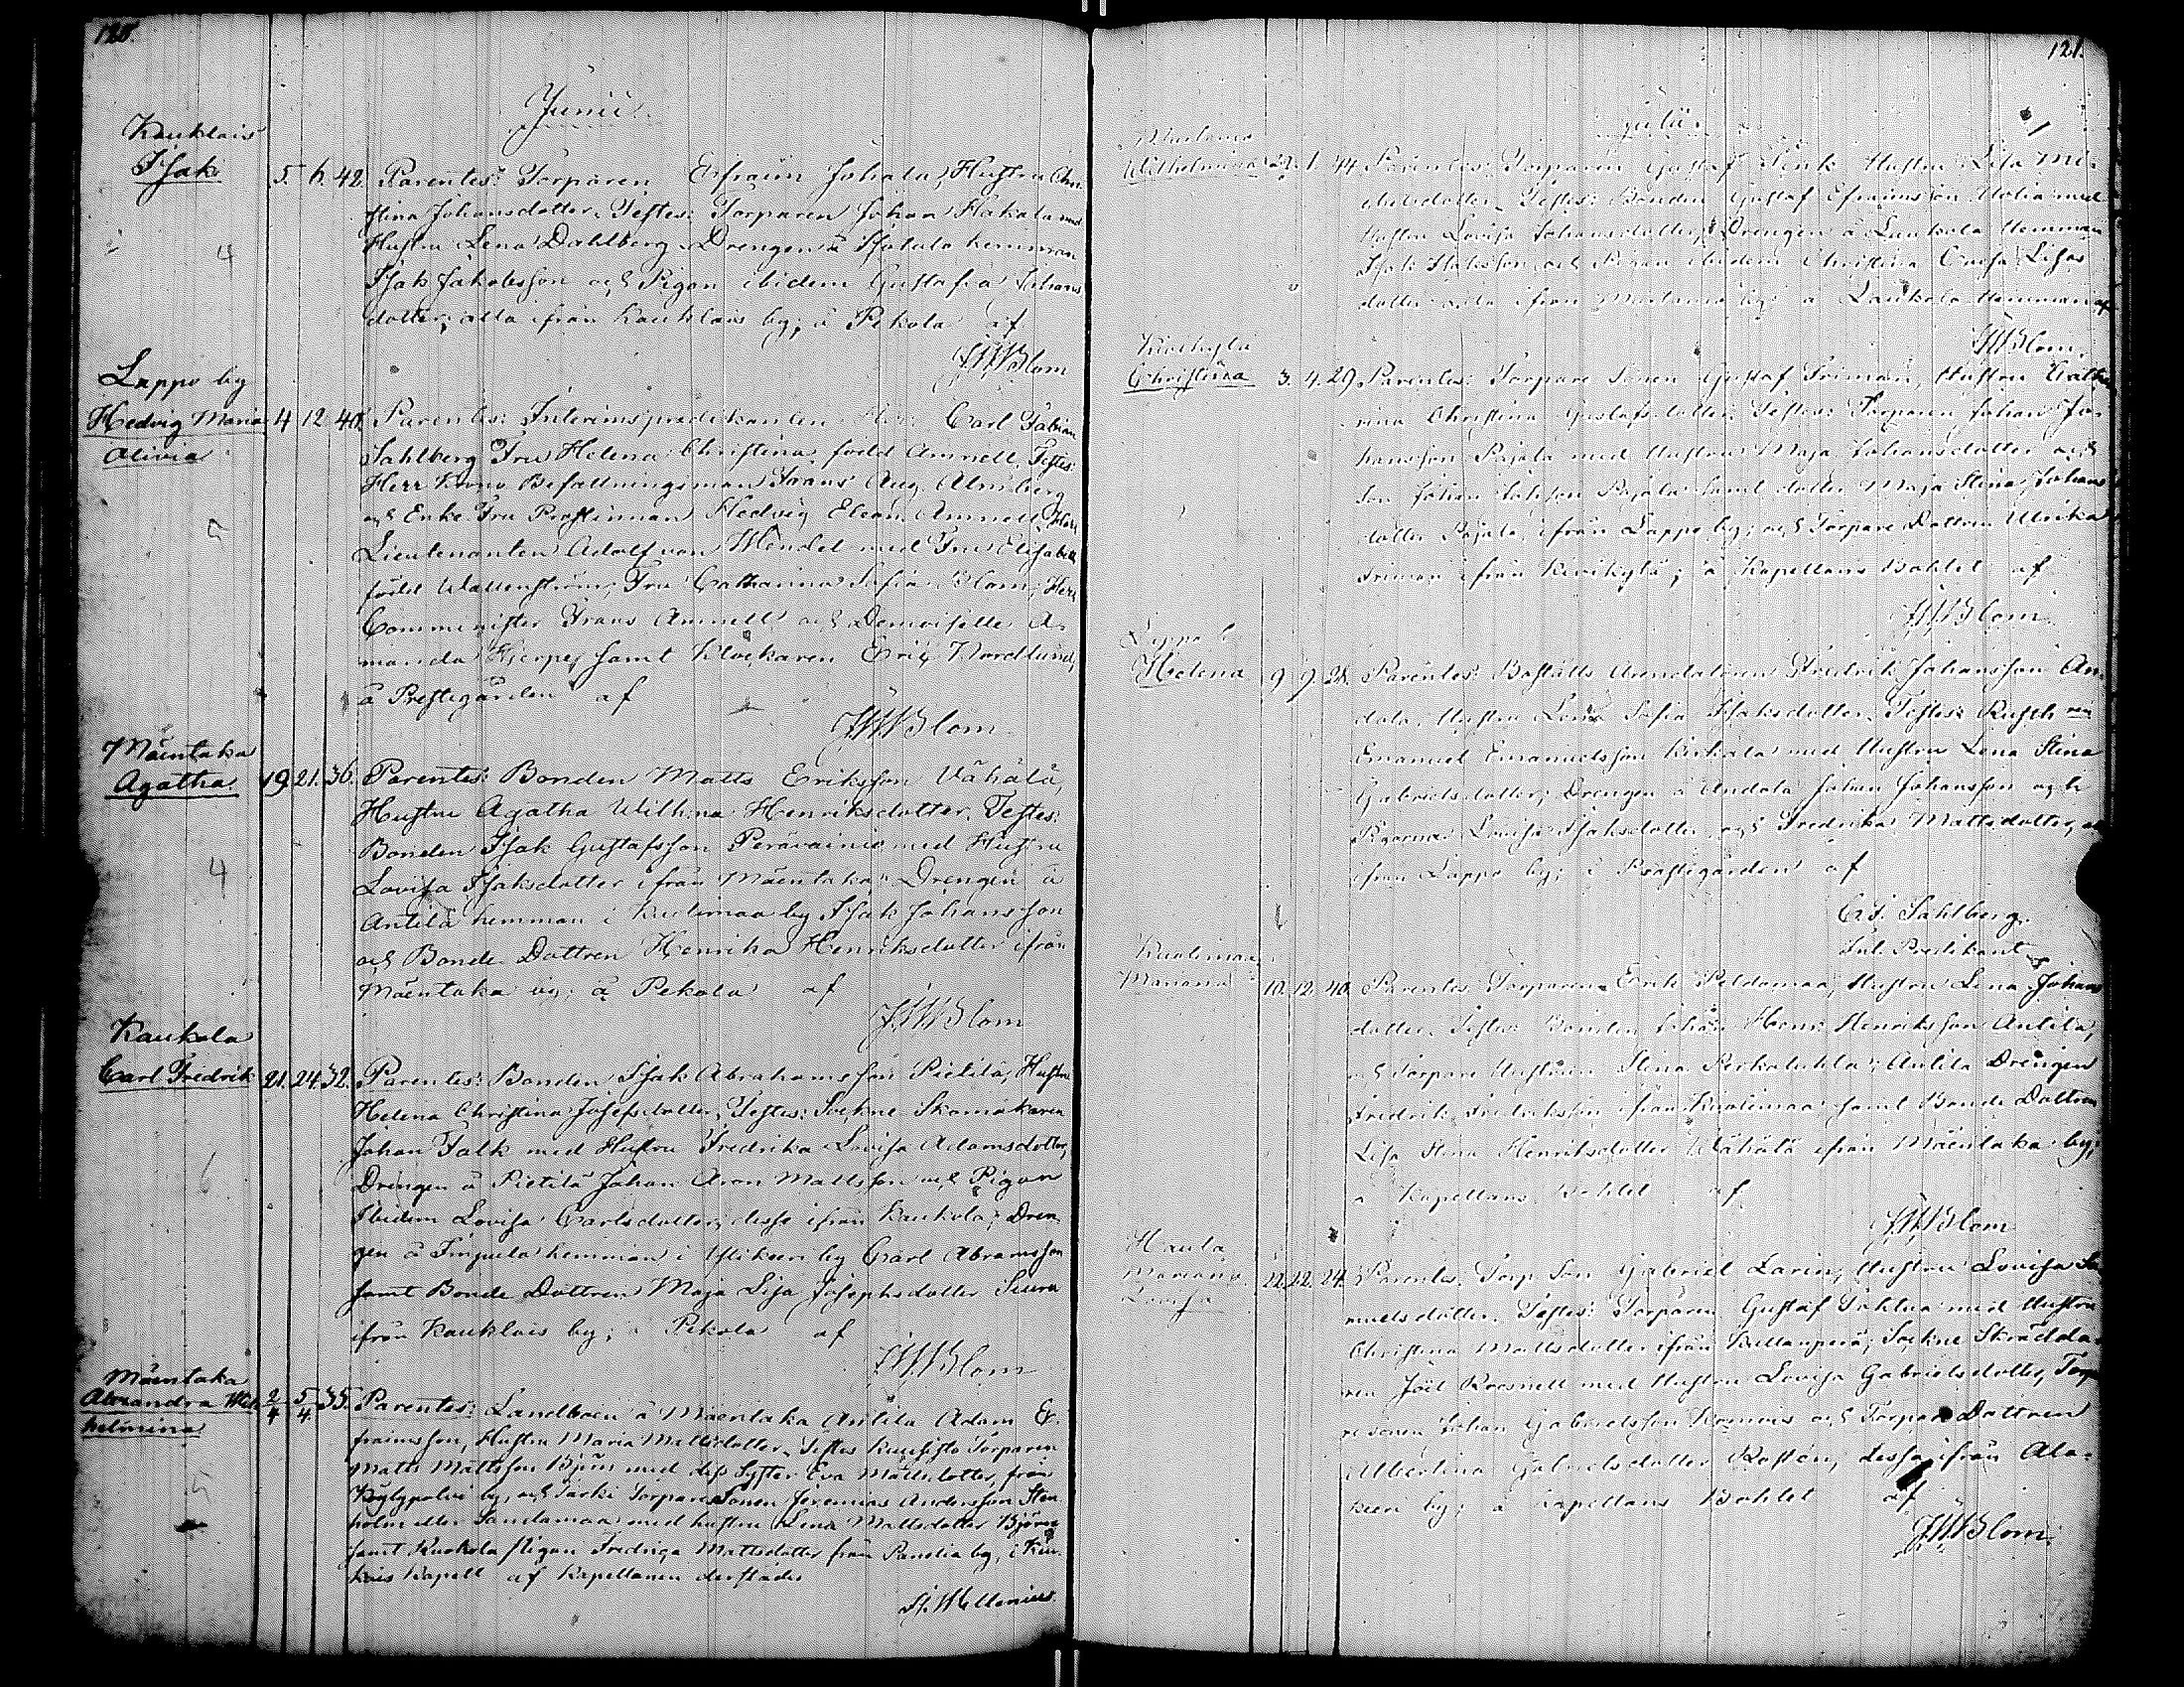 120.
Junii
Kauklais
Isak 5. 6. 42. Parentes: Torparen Efraim Johala, Hustru Chri-
stina Johansdotter. Testes: Torparen Johan Hakala med
Hustru Lena Dahlberg. Drengen å hemman
Isak Jakobsson och Pigan ibidem Gustafva Johans
dotter; alla ifrån Kauklais by; å Pekola af
F.W.Blom
Lappo by
Hedvig Maria 4 12 40. Parentes: Interimspredikanten Carl Fabian
Olivia
Sahlberg Fru Helena Christina född Amnell. Testes:
Herr Krono Befallningsman Frans Aug. Almberg
och Enke Fru Prostinnan Hedvig Eleon. Amnell, Herr
Lieutenanten Adolf von Wendel med Fru Elisabeth
född Wallenström; Fru Catharina Sofia Blom; Herr
Comminister Frans Amnell och Demoiselle A-
manda Hjerpe, samt Klockaren Eric Nordlund,
å Prestegården af
F.W.Blom
Mäentaka
Agatha. 19. 21. 36. Parentes: Bonden Matts Eriksson Vähälä,
Hustru Agatha Wilhma Henriksdotter. Testes:
Bonden Isak Gustafsson Perävainio med Hustru
Lovisa Isaksdotter ifrån Mäentaka; Drengen å
Antila hemman i Kuolimaa by Isak Johansson
och Bonde Dottren Henrika Henriksdotter ifrån
Mäentaka by; å Pekola af
F.W.Blom
Kaukola
Carl Fredrik 21. 24. 32. Parentes: Bonden Isak Abrahamsson Pietilä, Hustru
Helena Christina Josefsdotter. Testes: Sockne Skomakaren
Johan Falk med Hustru Fredrika Lovisa Adamsdotter,
Drengen å Pietilä Johan Aron Mattsson och Pigan
Ibidem Lovisa Carlsdotter; desse ifrån Kaukola; Dren-
gen å hemman i by Carl Abramsson
samt Bonde Dottren Maja Lisa Josephsdotter Suura
ifrån Kauklais by; å Pekola af
F.W.Blom
Mäentaka
Alexandra Wil- 2/4 5/4 35. Parentes: Landboen å Mäentaka Antila Adam E-
helmina
fraimsson, Hustru Maria Mattsdotter. Testes Torparen
Matts Mattsson Björn med dess Syster Eva Mattsdotter, från
by, och Torpare Sonen Jeremias Andersson Sten
holm eller Santamaa med hustru Lena Mattsdotter Björn
samt pigan Fredrica Mattsdotter från Panelia by, i
Kapell af Kapellanen derstädes
Mellenius.
121.
Julii
Wilhelmina 29. 1. 44 Parentes: Torparen Gustaf Fink Hustru Lisa Mi-
chelsdotter. Testes: Bonden Gustaf Efraimsson med
Hustru Lovisa Johansdotter, Drengen å Laukola Hemman
Isak Isaksson och Pigan ibidem Christina Cajsa Lisas
dotter alla ifrån by; å Laukola Hemman af
F.W.Blom.
Kivikylä
Christina 3. 4. 29. Parentes: Torpare Sonen Gustaf Friman, Hustru Catha-
rina Christina Gustafsdotter. Testes: Torparen Johan Jo-
hansson Pajala med Hustru Maja Johansdotter och
son Johan Johsson Pajala samt dotter Maja Stina Johans
dotter Pajala, ifrån Lappo by; och Torpare Dottren Ulrika
Friman ifrån Kivikylä; å Kapellans Bohlet af
F.W.Blom.
Lappo by
Helena 9 9 28. Parentes: Boställs Arendatoren Fredrik Johansson An-
dola, Hustru Lena Sofia Isaksdotter. Testes:
Emanuel Emanuelsson Kirkala med Hustru Lena Stina
Gabrielsdotter; Drengen å Andola Johan Johansson och
Pigorna Lovisa Isaksdotter och Fredrika Mattsdotter,
ifrån Lappo by; å Prestegården af
C.F. Sahlberg.
Int. Predikant
Kuolimaa
Mariana 10. 12. 40. Parentes: Torparen Erik Peldomaa, Hustru Lena Johans
dotter. Testes: Bonden Henriksson Antila,
och Torpare Hustrun Stina; Antila Drengen
Fredrik Fredriksson ifrån Kuolimaa samt Bonde Dottren
Lisa Stina Henriksdotter Wähälä ifrån Mäentaka by;
å Kapellans Bohlet af
F.W.Blom
Mariana 22. 22. 24. Parentes: Torp Son Gabriel Larin, Hustru Lovisa Sa-
Lovisa
muelsdotter. Testes: Torparen Gustaf med Hustru
Christina Mattsdotter ifrån Kullanperä; Sockne Skrädda-
ren Joel Rosnell med Hustru Lovisa Gabrielsdotter, Torpa-
re Sonen Johan Gabrielsson och Torpare Dottren
Albertina Gabrielsdotter Rostén, dessa ifrån Ala-
by; å Kapellans Bohlet af
F.W.Blom.